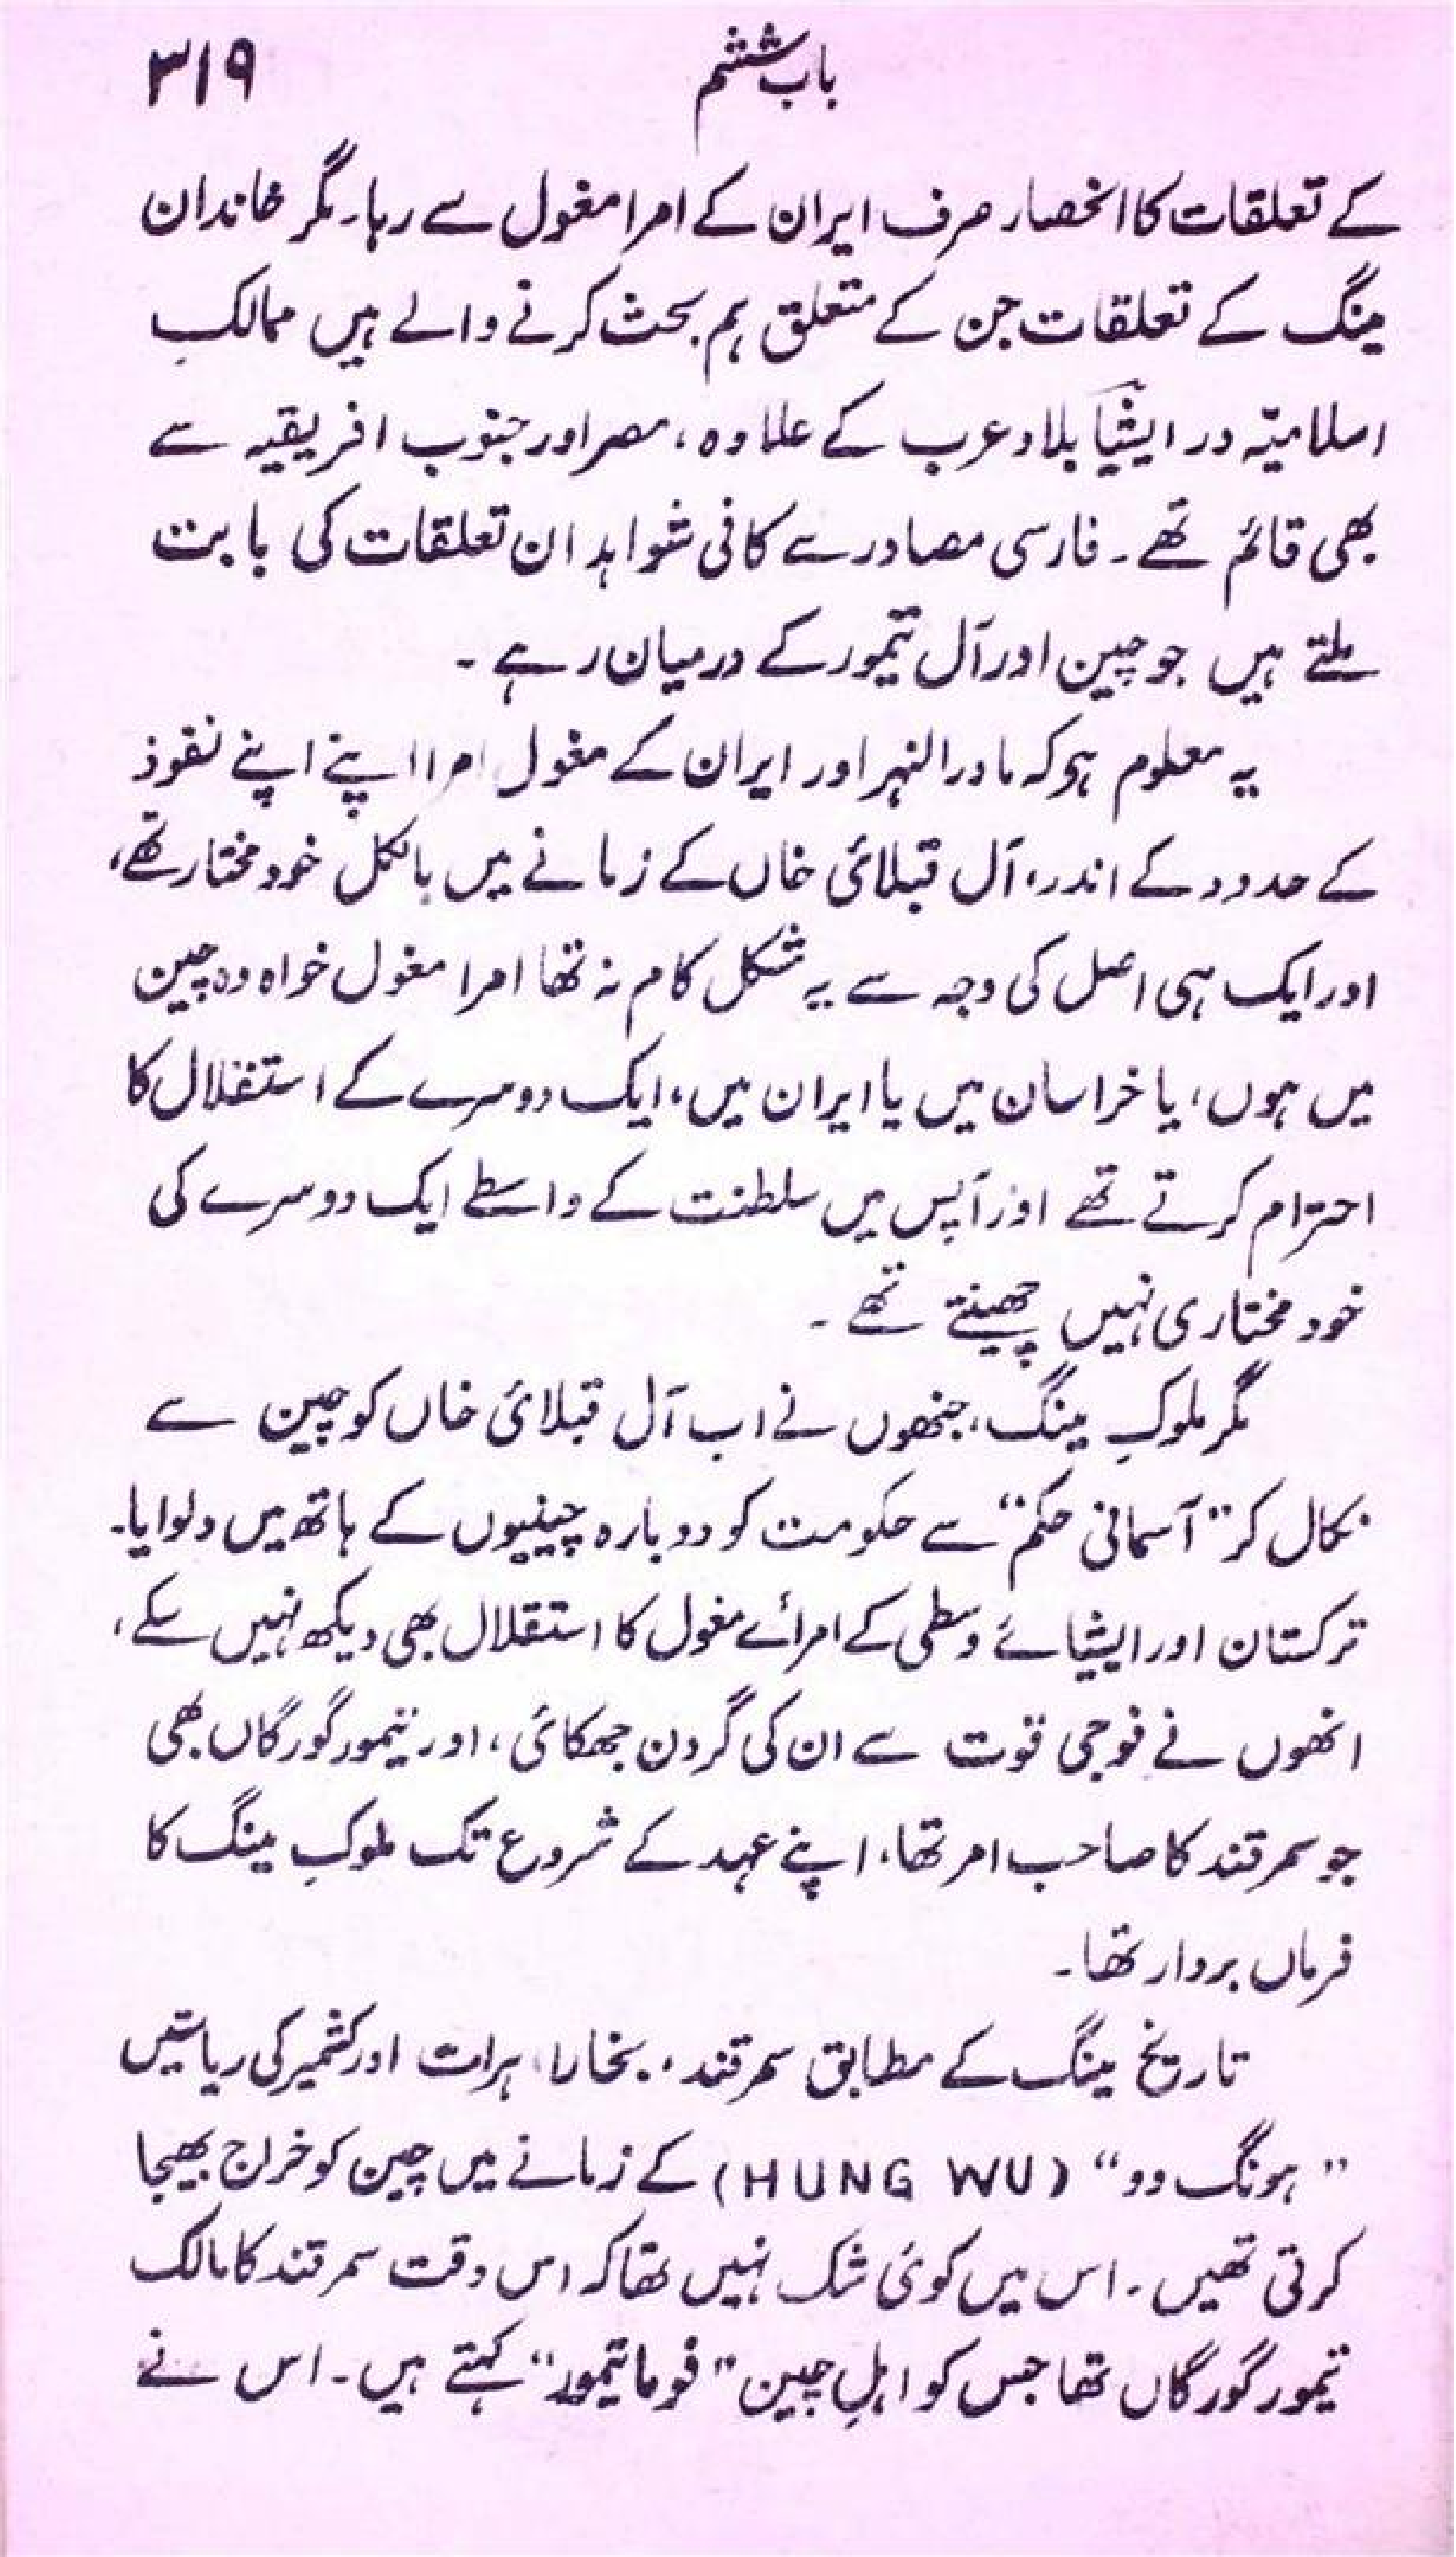 باب ششم ۳۱۹
کے تعلقات کا انحصار صرف ایران کے امرا مغول سے رہا۔ مگر خاندان
مینگ کے تعلقات جن کے متعلق ہم بحث کرنے والے ہیں ممالکِ
اسلامیّہ در ایشیا بلاد عرب کے علاوہ، مصر اور جنوب افریقیہ سے
بھی قائم تھے۔ فارسی مصادر سے کافی شواہد ان تعلقات کی بابت
ملتے ہیں جو چین اور آل تیمور کے درمیان رہے۔
یہ معلوم ہو کہ ماورالنہر اور ایران کے مغول امرا اپنے اپنے نفوذ
کے حدود کے اندر، آل قبلائی خاں کے زمانے میں بالکل خود مختار تھے،
اور ایک ہی اصل کی وجہ سے یہ مشکل کام نہ تھا امرا مغول خواہ وہ چین
میں ہوں، یا خراسان میں یا ایران میں، ایک دوسرے کے استقلال کا
احترام کرتے تھے اور آپس میں سلطنت کے واسطے ایک دوسرے کی
خود مختاری نہیں چھینتے تھے۔
مگر ملوکِ مینگ، جنھوں نے اب آل قبلائی خاں کو چین سے
نکال کر "آسمانی حکم" سے حکومت کو دوبارہ چینیوں کے ہاتھ میں دلوایا۔
ترکستان اور ایشیائے وسطی کے امرائے مغول کا استقلال بھی دیکھ نہیں سکے،
انھوں نے فوجی قوت سے ان کی گردن جھکائی، اور تیمور گورگاں بھی
جو سمرقند کا صاحب امر تھا، اپنے عہد کے شروع تک ملوکِ مینگ کا
فرماں بردار تھا۔
تاریخ مینگ کے مطابق سمرقند، بخارا، ہرات اور کشمیر کی ریاستیں
"ہونگ وو" (HUNG WU) کے زمانے میں چین کو خراج بھیجا
کرتی تھیں۔ اس میں کوئی شک نہیں تھا کہ اس وقت سمرقند کا مالک
تیمور گورگاں تھا جس کو اہلِ چین "فوما تیمور" کہتے ہیں۔ اس نے